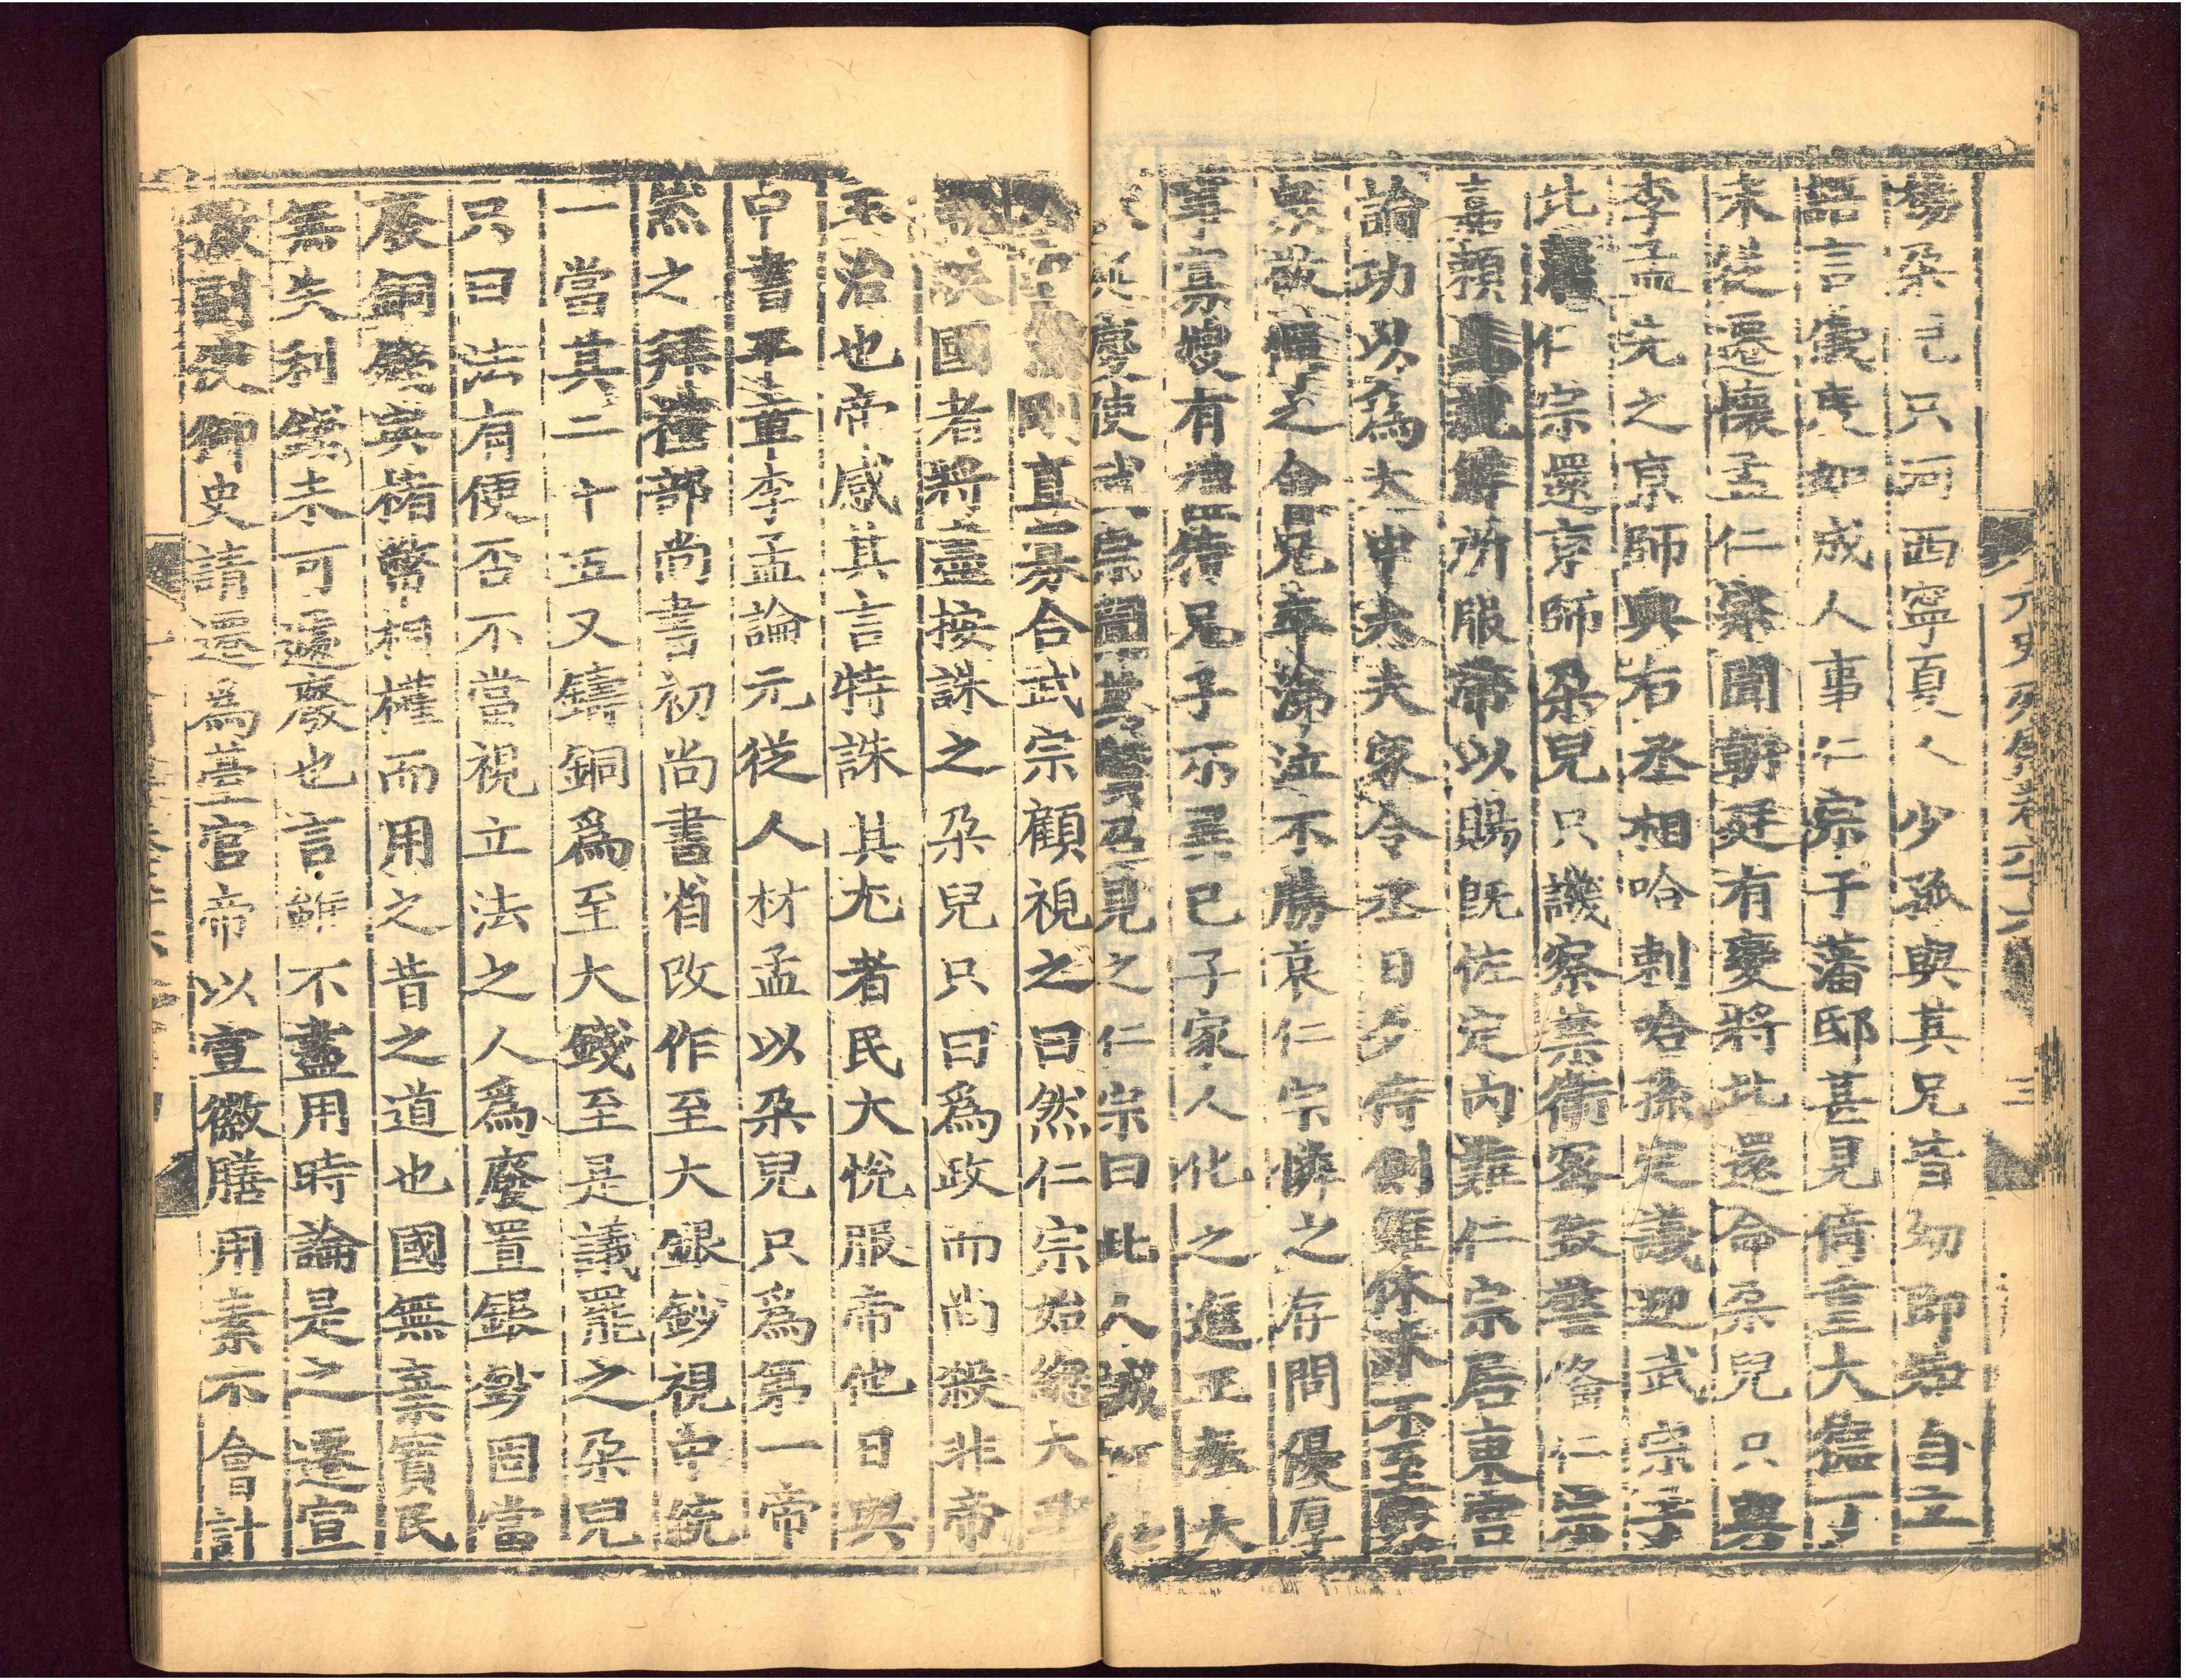 楊朶兒只河西寧夏人少孤與其兄皆幼即知自立
語言儀度如成人事仁宗于藩邸甚見倚重大德丁
未從遷懷孟仁宗聞朝廷有變將北還命朶兒只與
李孟先之京師與右丞相哈剌哈孫定議迎武宗于
北藩仁宗還京師朶兒只譏察禁衛密致警備仁宗
嘉賴焉親解所服帶以賜既佐定內難仁宗居東宮
論功以為太中大夫家令丞日夕侍側雖休沐不至家
衆敬憚之會兄卒涕泣不勝哀仁宗憐之存問優厚
事寡嫂有禮待兄子不異己子家人化之進正奉大
夫延慶使武宗聞其賢召見之仁宗曰此人誠可任
大事然剛直寡合武宗顧視之曰然仁宗始總大政
執誤國者將盡按誅之朶兒只曰爲政而尚殺非帝
王治也帝感其言特誅其尤者民大悅服帝他日與
中書平章李孟論元從人材孟以朶兒只爲第一帝
然之拜禮部尚書初尚書省改作至大銀鈔視中統
一當其二十五又鑄銅爲至大錢至是議罷之朶兒
只曰法有便否不當視立法之人爲廢置銀鈔固當
廢銅錢與楮幣相權而用之昔之道也國無棄寶民
無失利錢未可遽廢也言雖不盡用時論是之遷宣
徽副使御史請遷爲臺官帝以宣徽膳用素不會計
元史列傳卷六十六
三